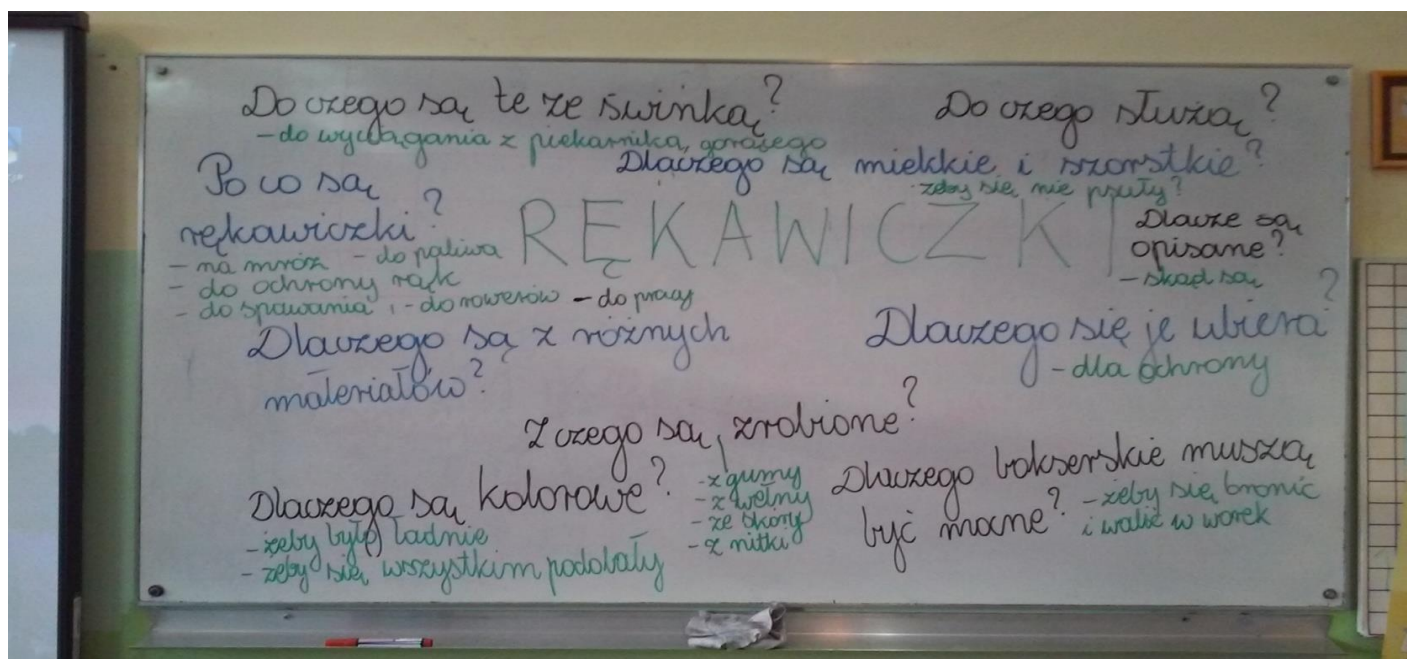 Do czego są te ze świnką?
- do wyciągania z piekarnika, gorącego
Do czego służą?
Dlaczego są miękkie i szorstkie?
- żeby się nie psuły?
Po co są
rękawiczki?
- na mróz - do paliwa
- do ochrony rąk
- do spawania, - do rowerów - do pracy
RĘKAWICZKI
Dlacze są
opisane?
- skąd są
Dlaczego są z różnych
materiałów?
Dlaczego się je ubiera?
- dla ochrony
Z czego są zrobione?
- z gumy
- z wełny
- ze skóry
- z nitki
Dlaczego są kolorowe?
- żeby było ładnie
- żeby się wszystkim podobały
Dlaczego bokserskie muszą
być mocne? - żeby się bronić
i walić w worek